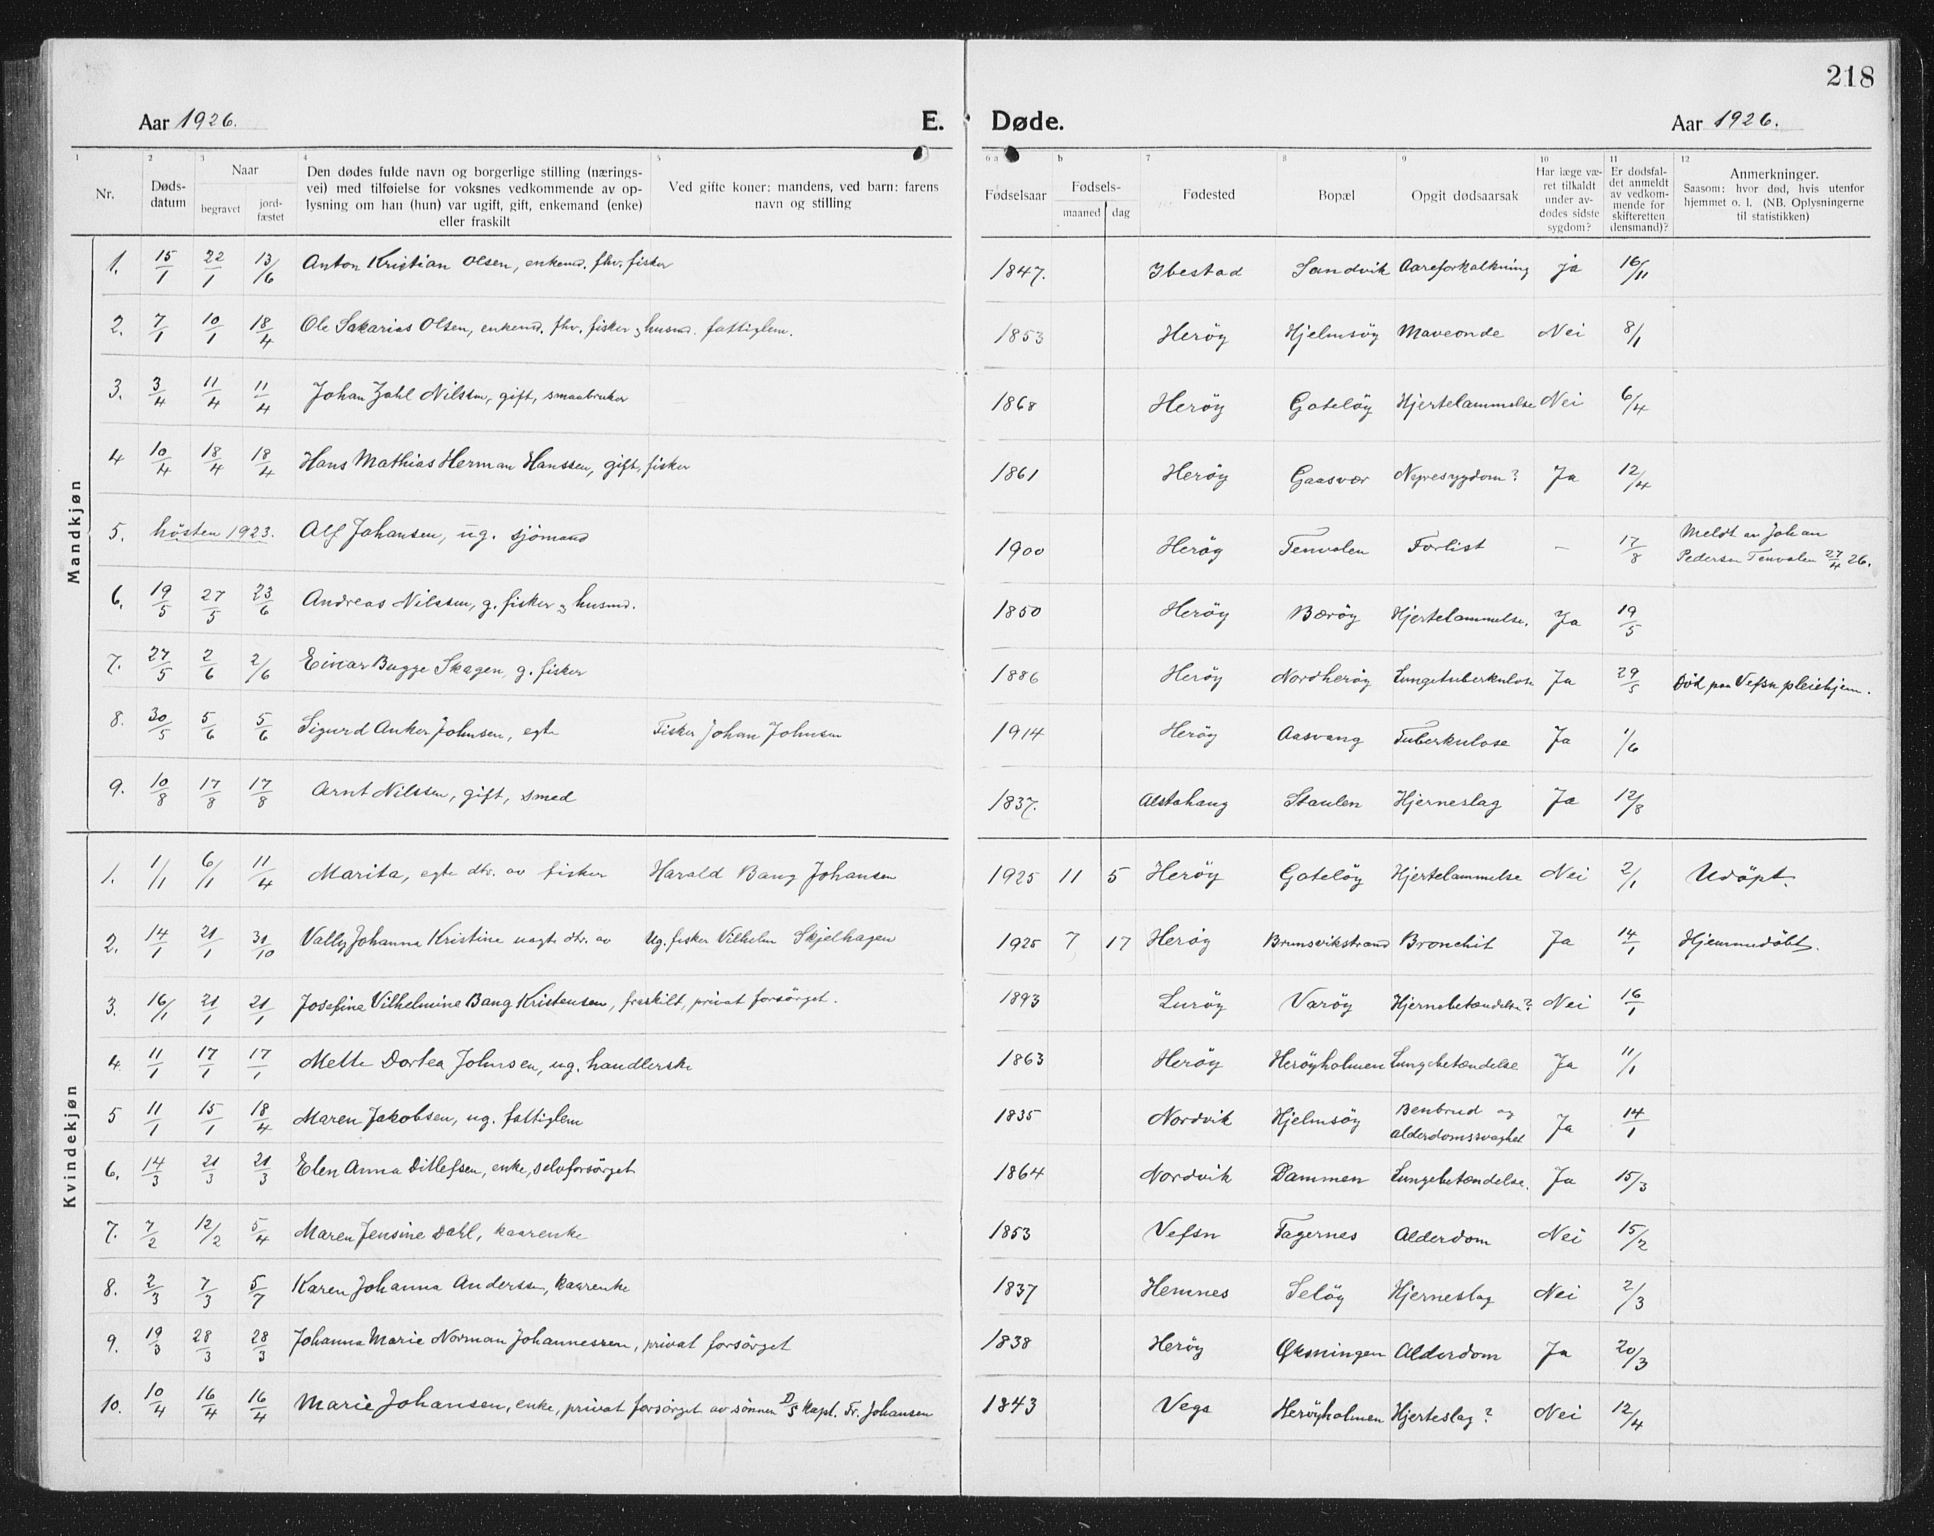 218
Aar 1926. E. Døde. Aar 1926.
1 2 3 4 5 6 a b 7 8 9 10 11 12
Nr. Døds-datum Naar begravet jord-fæstet Den dødes fulde navn og borgerlige stilling (nærings-vei) med tilføielse for voksnes vedkommende av op-lysning om han (hun) var ugift, gift, enkemand (enke) eller fraskilt Ved gifte koner: mandens, ved barn: farens navn og stilling Fødselsaar Fødsels- maaned dag Fødested Bopæl Opgit dødsaarsak Har læge væ-ret tilkaldt under av-dødes sidste sygdom? Er dødsfal-det anmeldt av vedkom-mende for skifteretten (lensmand)? Anmerkninger. Saasom: hvor død, hvis utenfor hjemmet o. l. (NB. Oplysningerne til statistikken)
Mandkjøn
1. 15/1 22/1 13/6 Anton Kristian Olsen, enkemd. fhv. fisker 1847. Ibestad Sandvik Aareforkalkning ja 16/11
2. 7/1 10/1 18/4 Ole Sakarias Olsen, enkemd. fhv. fisker & husmd. fattiglem. 1853 Herøy Hjelmsöy Maveonde Nei 8/1
3. 3/4 11/4 11/4 Johan Zahl Nilssen, gift, smaabruker 1868 Herøy Gateløy Hjertelammelse Nei 6/4
4 10/4 18/4 18/4 Hans Mathias Herman Hanssen, gift, fisker 1861 Herøy Gaasvær Nyresygdom? Ja 12/4
5. hösten 1923. Alf Johansen, ug. sjömand 1900 Herøy Tenvalen Forlist - 17/8 Meldt av Johan Pedersen Tenvalen 27/4 26.
6. 19/5 27/5 23/6 Andreas Nilssen, g. fisker & husmd. 1850 Herøy Bærøy Hjertelammelse. Ja 19/5
7. 27/5 2/6 2/6 Einar Bugge Skagen, g. fisker 1886 Herøy Nordherøy Lungetuberkulose Ja 29/5 Død paa Vefsn pleiehjem.
8. 30/5 5/6 5/6 Sigurd Anker Johnsen, egte Fisker Johan Johnsen 1914 Herøy Aasvang Tuberkulose Ja 1/6
9. 10/8 17/8 17/8 Arnt Nilssen, gift, smed 1837. Alstahaug Staulen Hjerneslag Ja 12/8
Kvindekjøn
1. 1/1 6/1 11/4 Marita, egte dtr. av fisker Harald Bang Johansen 1925 11 5 Herøy Gateløy Hjertelammelse Nei 2/1 Udöpt.
2. 14/1 21/1 31/10 Vally Johanna Kristine uegte dtr. av Ug. fisker Vilhelm Skjelhagen 1925 7 17 Herøy Brunsvikstrand Bronchit Ja 14/1 Hjemmedöbt.
3. 16/1 21/1 21/1 Josefine Vilhelmine Bang Kristensen, fraskilt, privat forsörget. 1893 Luröy Varöy Hjernebetændelse? Nei 16/1
4. 11/1 17/1 17/1 Mette Dortea Johnsen, ug. handlerske 1863 Herøy Herøyholmen Lungebetændelse Ja 11/1
5 11/1 15/1 18/4 Maren Jakobsen, ug. fattiglem 1835 Nordvik Hjelmsöy Benbrud og alderdomssvaghet Ja 14/1
6. 14/3 21/3 21/3 Elen Anna Ditlefsen, enke, selvforsörget 1864 Nordvik Dammen Lungebetændelse. Ja 15/3
7. 7/2 12/2 5/4 Maren Jensine Dahl, kaarenke 1853 Vefsn Fagernes Alderdom Nei 15/2
8. 2/3 7/3 5/7 Karen Johanna Anderssen, kaarenke 1837 Hemnes Seløy Hjerneslag Nei 2/3
9. 19/3 28/3 28/3 Johanna Marie Norman Johannessen, privat forsörget 1838 Herøy Øksningen Alderdom Ja 20/3
10. 10/4 16/4 16/4 Marie Johansen, enke, privat forsörget av sönnen D/S kapt. Fr. Johansen 1843 Vega Herøyholmen Hjerteslag? Nei 12/4